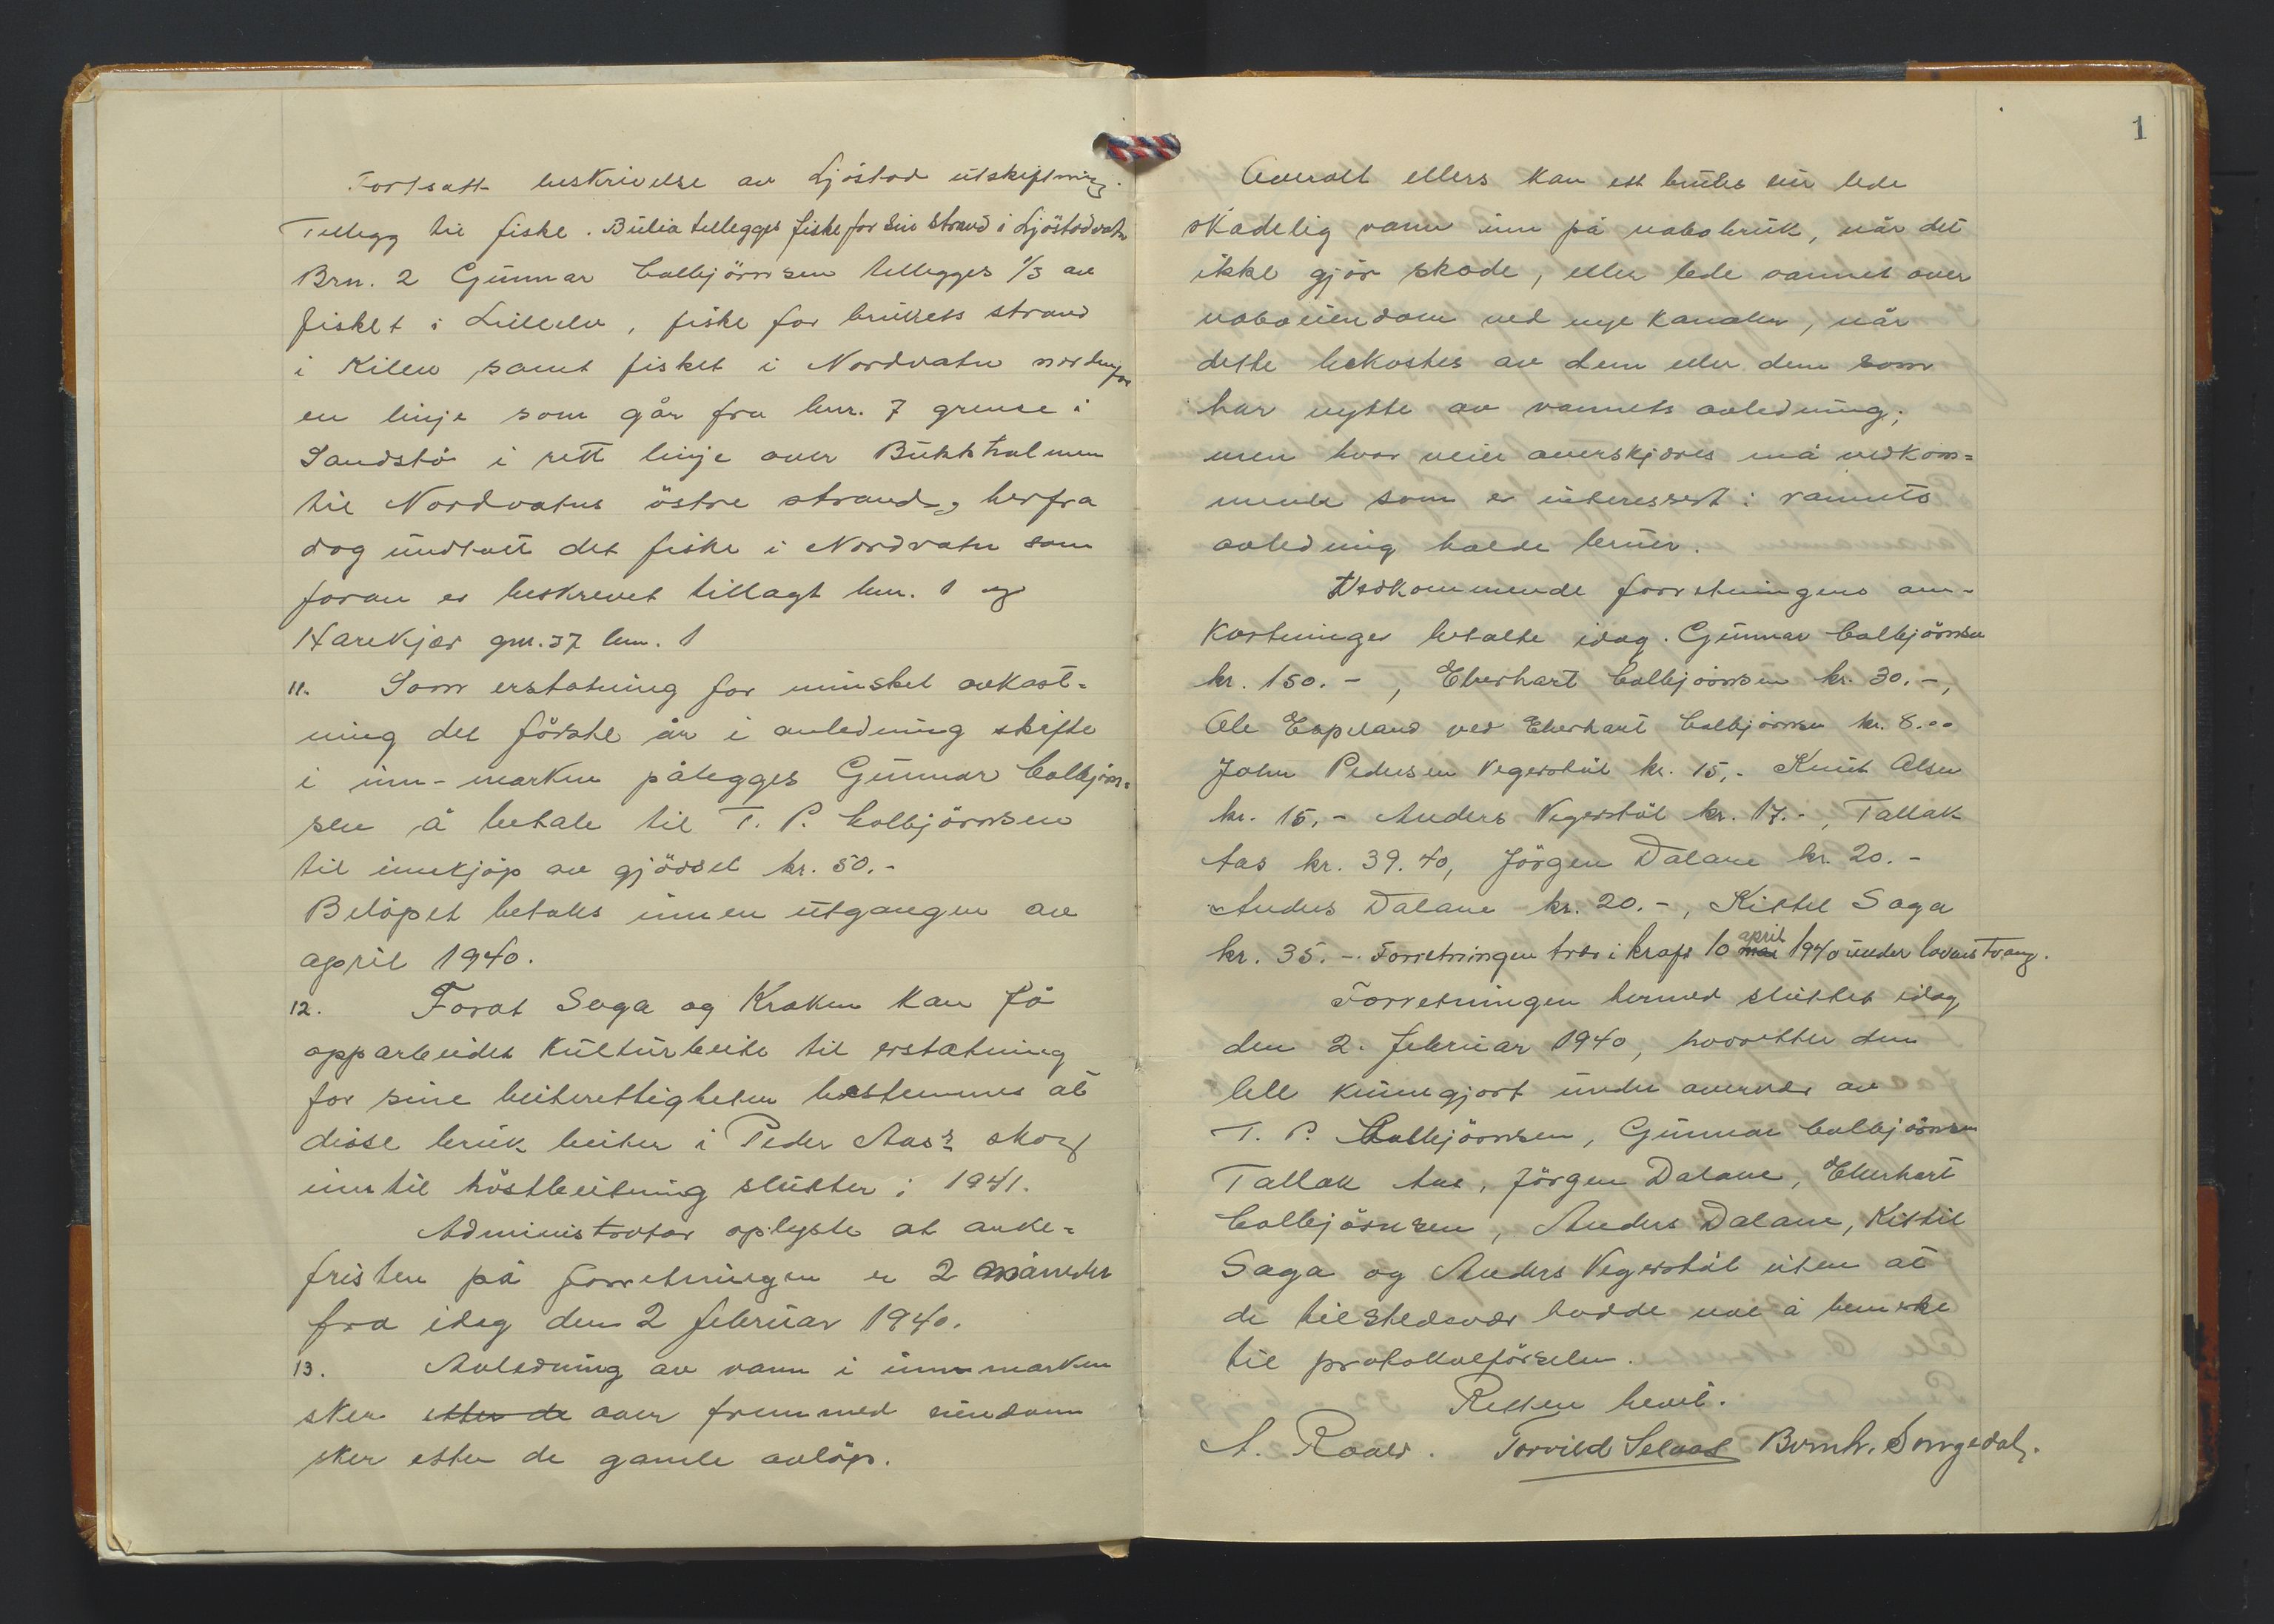 Fortsatt beskrivelse av Ljöstad utskiftning.
Tillegg til fiske. Bulia tillegges fiske for sin strand i Ljöstadvatn
Brn. 2 Gunnar Colbjörnsen tillegges 1/3 av
fisket i Lilleelv, fiske for brukets strand
i Kilen, samt fisket i Nordvatn nordenfor
en linje som går fra bnr. 7 grense i
Sandstö i rett linje over Bukkholmen
til Nordvatns östre strand, herfra
dog undtatt det fiske i Nordvatn som
foran er beskrevet tillagt bnr. 1 og
Harekjær gnr. 37 bnr. 1
11. Som erstatning for minsket avkast=
ning det förste år i anledning skifte
i inn-marken pålegges Gunnar Colbjörn=
sen å betale til T. P. Colbjörnsen
til innkjöp av gjödsel kr. 50.-
Belöpet betales innen utgangen av
april 1940.
12. Forat Saga og Kroken kan få
opparbeidet kulturbeite til erstatning
for sine beiterettigheter bestemmes at
disse bruk beiter i Peder Aas's skog
inntil höstbeitning slutter i 1941.
Administrator oplyste at anke=
fristen på forretningen er 2 måneder
fra idag den 2 februar 1940.
13. Avledning av vann i innmarken
sker etter de over fremmed eiendom
sker etter de gamle avlöp.
1
Overalt ellers kan ett bruks eier lede
skadelig vann inn på nabobruk, når det
ikke gjör skade, eller lede vannet over
naboeiendom ved nye kanaler, når
dette bekostes av dem eller dem som
har nytte av vannets avledning;
men hvor veier overskjæres må vedkom=
mende som er interessert i vannets
avledning holde bruer.
Vedkommende forretningens om-
kostninger betalte idag. Gunnar Colbjörnsen
kr. 150.-, Eberhart Colbjörnsen kr. 30.-,
Ole Espeland ved Eberhart Colbjörnsen kr. 8.00
John Pedersen Vegerstöl kr. 15,- Knut Olsen
kr. 15,- Anders Vegerstöl kr. 17.-, Tallak
Aas kr. 39.40, Jörgen Dalane kr. 20.-
Anders Dalane kr. 20.-, Kittel Saga
kr. 35.-. Forretningen trær i kraft 10 mai april 1940 under lovens tvang.
Forretningen hermed sluttet idag,
den 2. februar 1940, hvoretter den
blev kunngjort under overvær av
T. P. Colbjörnsen, Gunnar Colbjörnsen
Tallak Aas, Jörgen Dalane, Eberhart
Colbjörnsen, Anders Dalane, Kittil
Saga og Anders Vegerstöl uten at
de tilstedevær hadde noe å bemerke
til protokollförselen.
Retten hevet.
A. Roald. Torvild Selaas Bernh. Songedal.